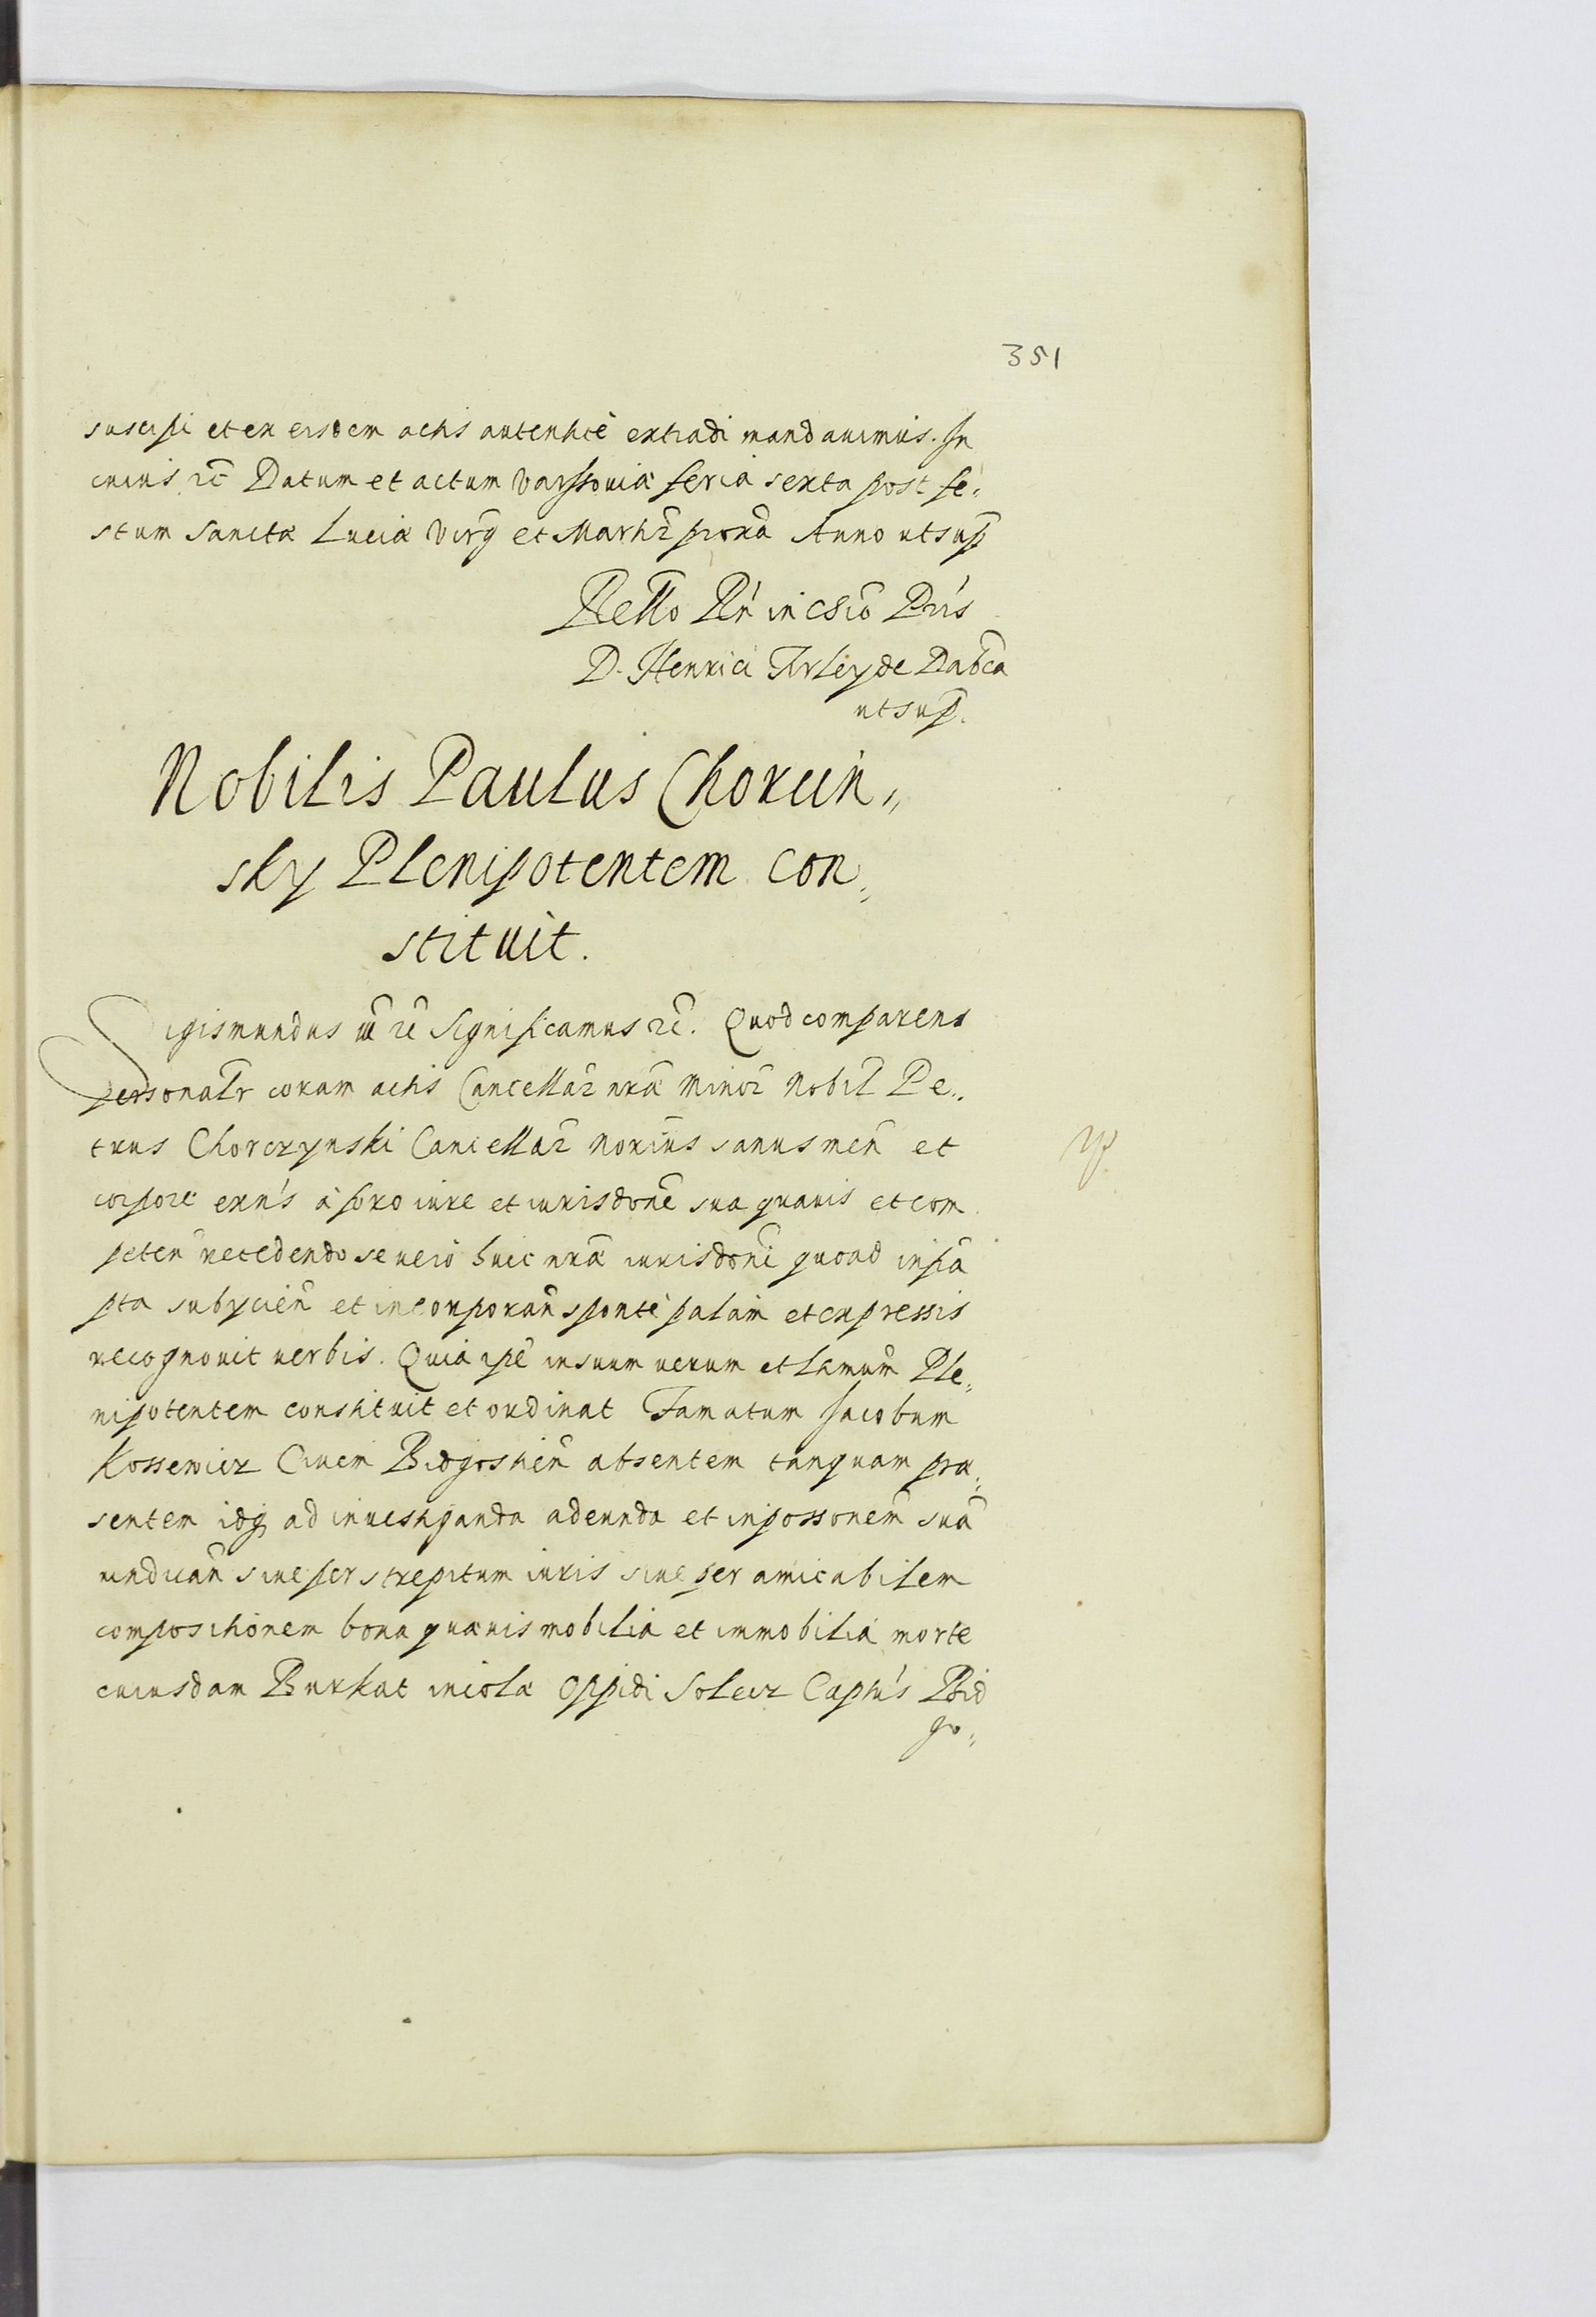 351
suscipi et ex eisdem actis autenticè extradi mandauimus. In
cuius rc̃ Datum et actum Varssouiæ feria sexta post fe,
stum Sanctæ Luciæ Virg̃ et Martir̃ proxã Anno ut sup̃
Rello Rñ in cs̃io Prís
D. Henrici Firley de Dabc̃a
ut sup̃.
Nobilis Paulus Chorcin,,
sky Plenipotentem con,,
stituit.
Sigismundus iii rc̃ Significamus rc̃. Quod comparens
personalr̃ coram actis Cancellar̃ nr̃æ Minor̃ Nobil̃ Pe,,
trus Chorczynski Cancellar̃ Norius sanus meñ et
corpore exñs à foro iure et iurisdone sua quauis et com
peteñ recedendo se uero huic nr̃æ iurisdoni quoad infra
pta subycień et incorporań sponte palam et expressis
recognouit uerbis. Quia ipẽ in suum uerum et ltmum Ple,,
nipotentem constituit et ordinat Famatum Jacobum
Kossewicz Ciuem Bidgostień absentem tanquam præ,,
sentem idq̃ ad inuestiganda adeunda et in possonem suã
uindicań siue per strepitum iuris siue per amicabilem
compositionem bona quæuis mobilia et immobilia morte
cuiusdam Burkat incolæ Oppidi Solecz Captús Bid
go,,